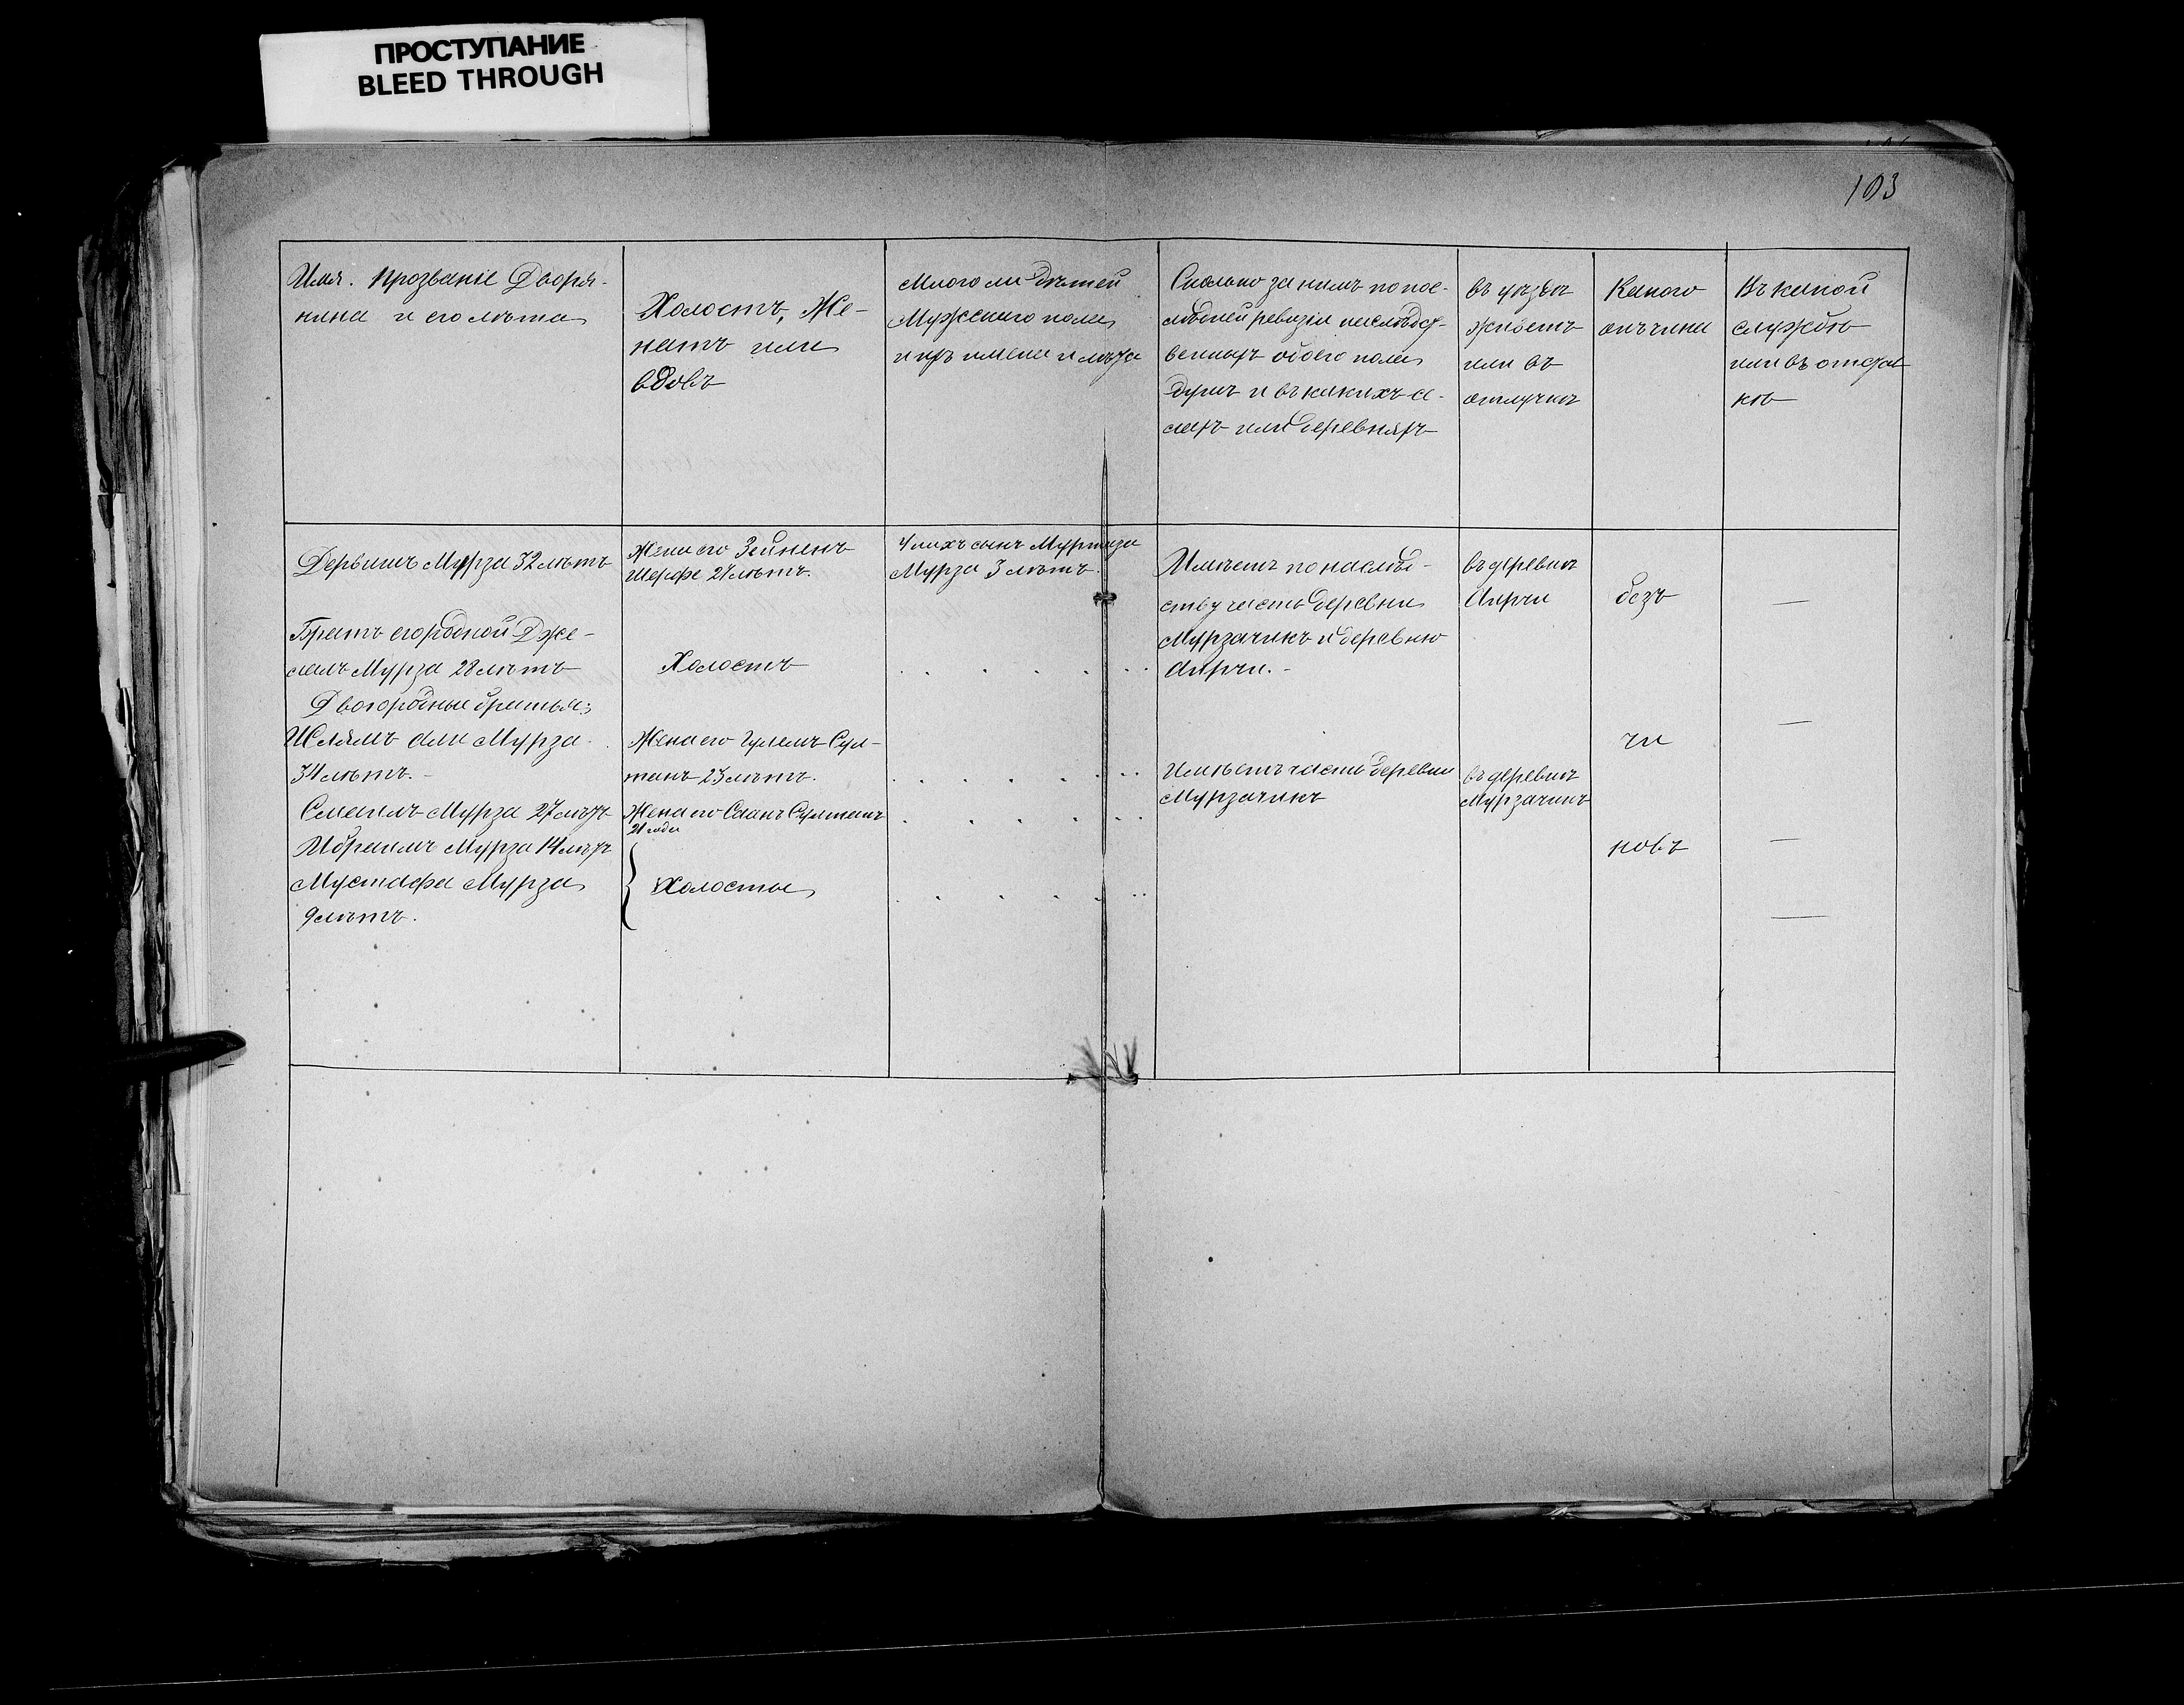 ПРОСТУПАНИЕ
BLEED THROUGH
103
Имя. Прозваніе Дворя-
нина и его лѣта
Холостъ, Же-
натъ или
вдовъ
Много ли дѣтей
Мужескаго пола
и ихъ имена и лѣта
Сколько за нимъ по пос-
лѣдней ревизіи наслѣдст-
венныхъ обоего пола
душъ и въ какихъ се-
лахъ или деревняхъ
въ уѣздѣ
живетъ
или въ
отлучкѣ
Какого
онъ чина
Въ какой
службѣ
или въ отстав
кѣ
Дервишъ Мурза 32 лѣтъ
Жена его Зейненъ
Шерфе 21 лѣтъ.
У нихъ сынъ Муртаза
Мурза 3 лѣтъ.
Имѣетъ по наслѣд-
ству часть деревни
Мурзачикъ и деревню
Аирчи.-
въ деревнѣ
Аирчи
безъ
—
Братъ его родной Дже-
лялъ Мурза 28 лѣтъ
Холостъ
Двоюродные братья:
Ислямъ Али Мурза
34 лѣтъ.-
Жена его Гулемъ Сул-
танъ 23 лѣтъ.
Имѣетъ часть деревни
Мурзачикъ
въ деревнѣ
Мурзачикъ
чи
—
Смаилъ Мурза 27 лѣтъ
Жена его Саанъ Султанъ
21 года
Ибраимъ Мурза 14 лѣтъ
Мустафа Мурза
9 лѣтъ.
Холосты
новъ
—
—